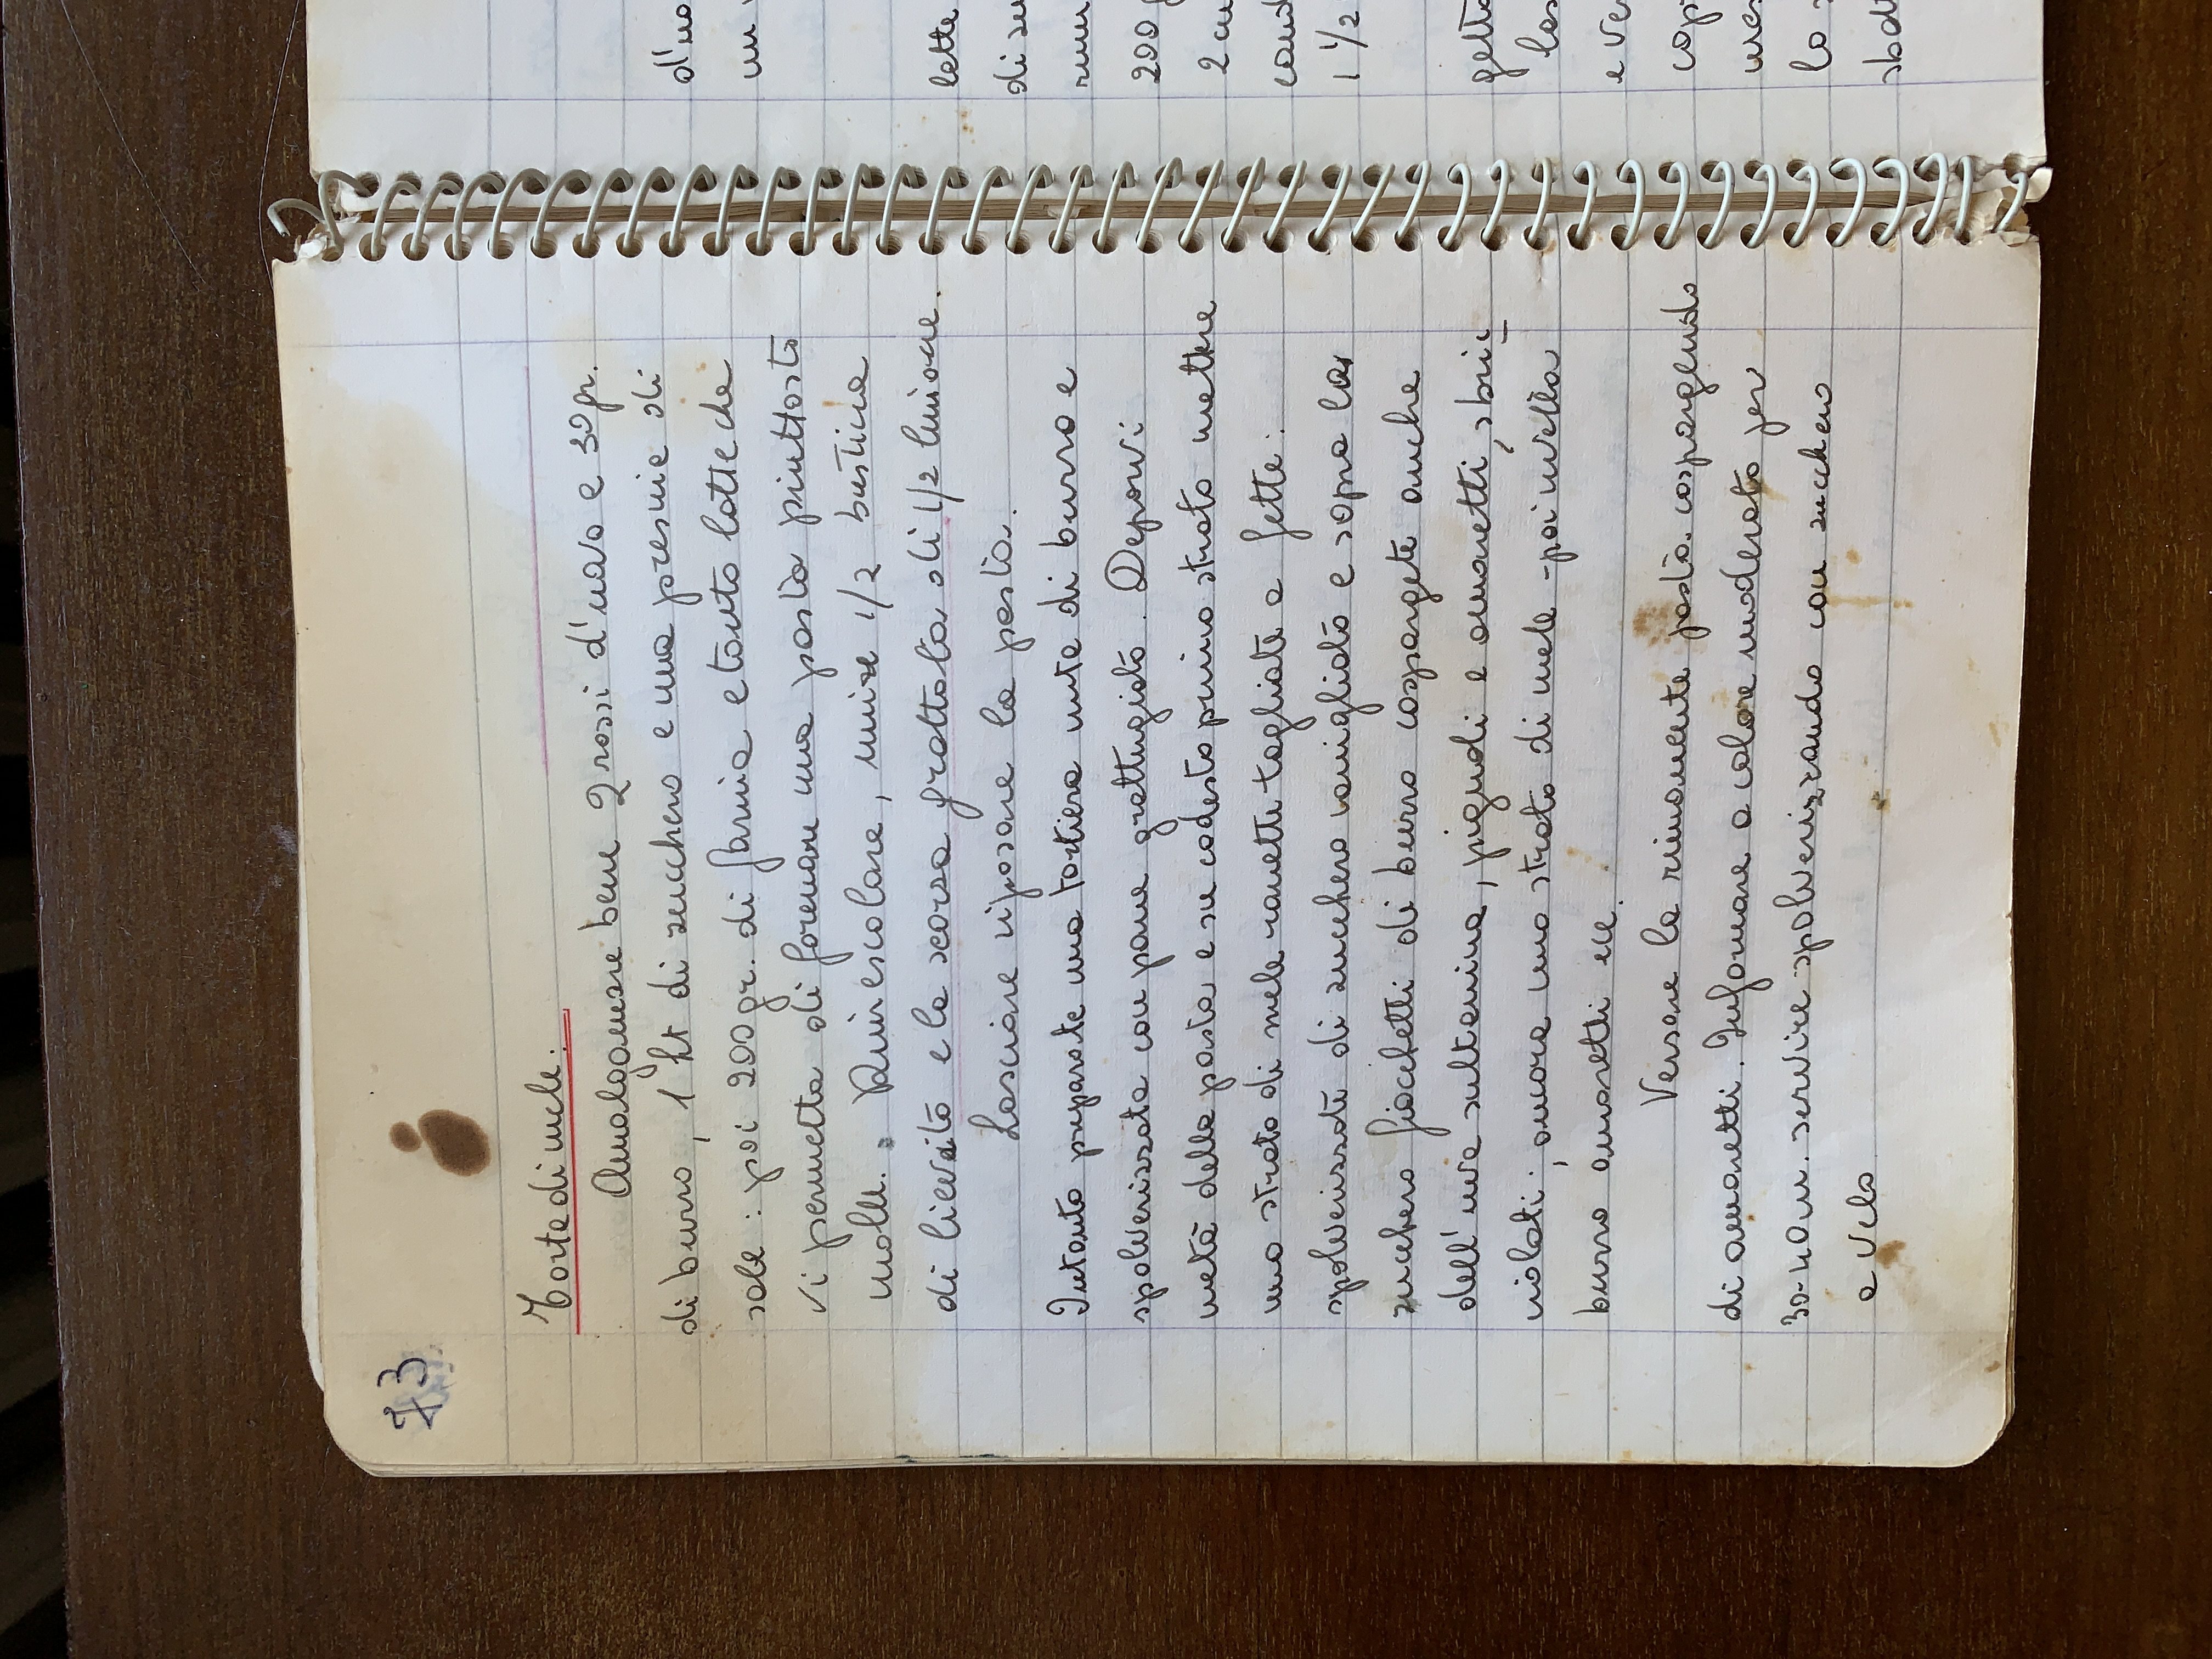 73
Torta di mele.
Amalgamare bene 2 rossi d'uovo e 30 gr.
di burro, 1 ht di zucchero e una presina di
sale : poi 200 gr. di farina e tanto latte che
vi permetta di formare una pasta piuttosto
molle. Rimescolare, unire 1/2 bustina
di lievito e la scorza grattata di 1/2 limone.
Lasciare riposare la pasta.
Intanto preparate una tortiera unta di burro e
spolverizzata con pane grattugiato. Deporvi
metà della pasta e su codesto primo strato mettere
uno strato di mele ranette tagliate a fette :
spolverizzate di zucchero vanigliato e sopra lo
zucchero fiocchetti di burro cospargete anche
dell'uva sultanina, pignoli e amaretti, sbri-
ciolati ; ancora uno strato di mele - poi uvetta
burro amaretti ecc.
Versare la rimanente pasta. cospargendo
di amaretti. Infornare a calore moderato per
30-40 m. servire spolverizzando con zucchero
a velo
d'uo
un
latte
di zu
rum
200 g
2 cu
cand
1 1/2
getta
las
e ve
cop
mes
lo s
sbat